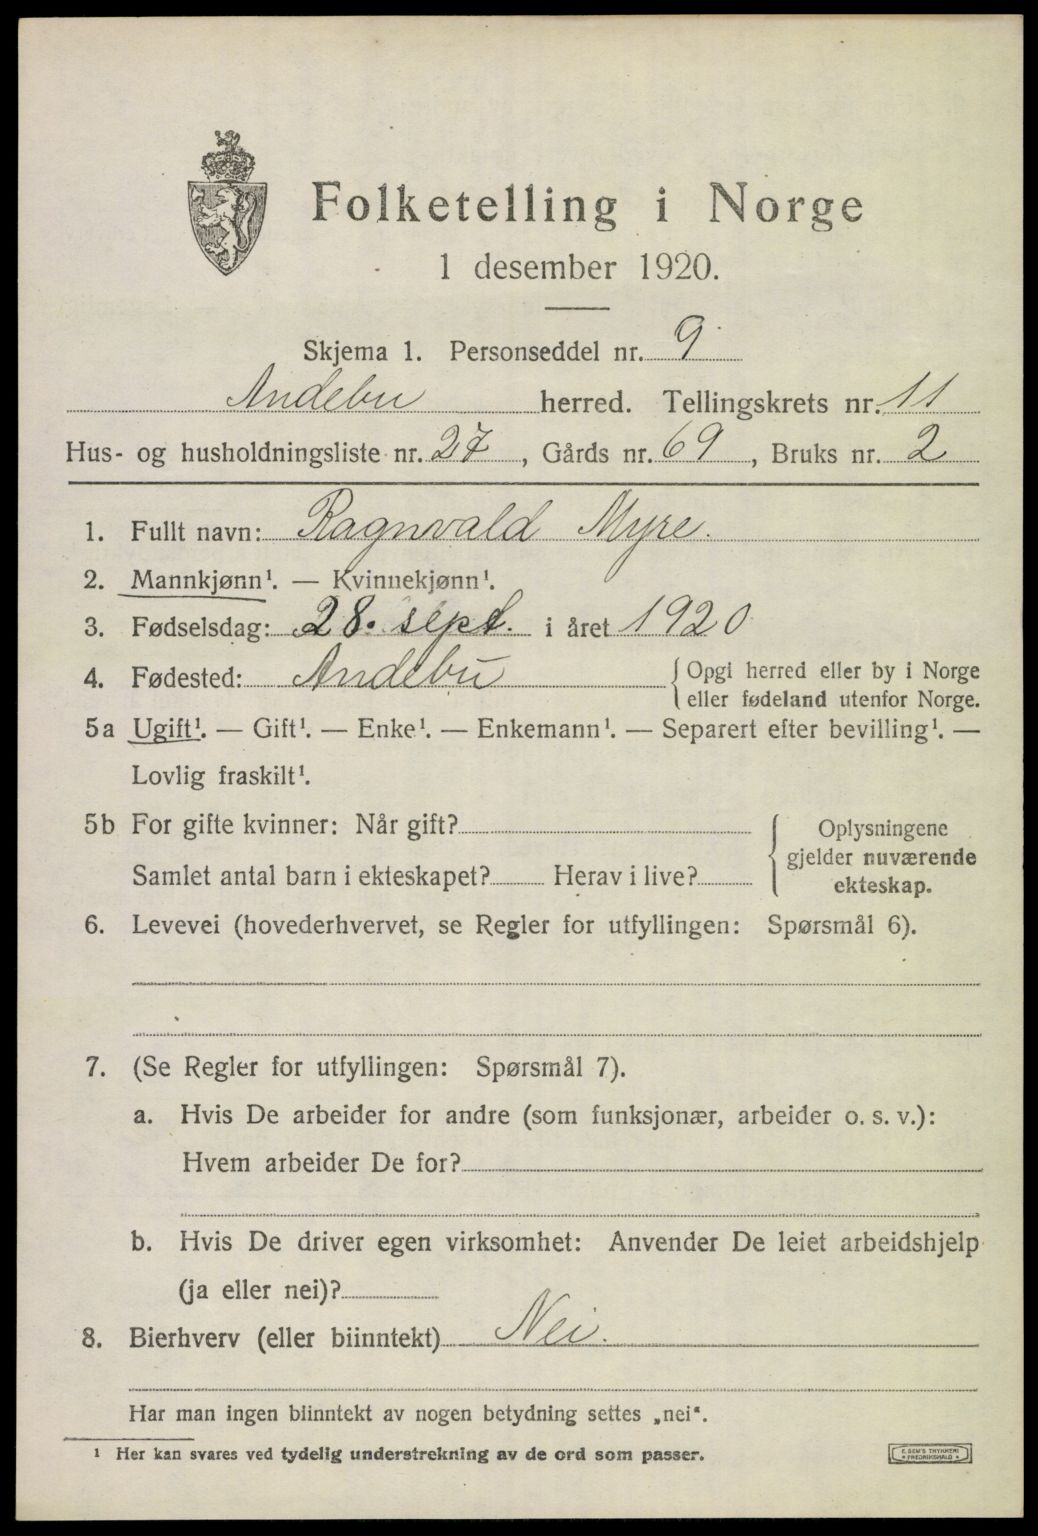 Folketelling i Norge
1 desember 1920.
Skjema 1. Personseddel nr. 9
Andebu herred. Tellingskrets nr. 11
Hus- og husholdningsliste nr. 27, Gårds nr. 69, Bruks nr. 2
1. Fullt navn: Ragnvald Myre.
2. Mannkjønn¹. — Kvinnekjønn¹.
3. Fødselsdag: 28. sept. i året 1920
4. Fødested: Andebu { Opgi herred eller by i Norge
eller fødeland utenfor Norge.
5a Ugift¹. — Gift¹. — Enke¹. — Enkemann¹. — Separert efter bevilling¹. —
Lovlig fraskilt¹.
5b For gifte kvinner: Når gift?
Samlet antal barn i ekteskapet? Herav i live?
{ Oplysningene
gjelder nuværende
ekteskap.
6. Levevei (hovederhvervet, se Regler for utfyllingen: Spørsmål 6).
7. (Se Regler for utfyllingen: Spørsmål 7).
a. Hvis De arbeider for andre (som funksjonær, arbeider o. s. v.):
Hvem arbeider De for?
b. Hvis De driver egen virksomhet: Anvender De leiet arbeidshjelp
(ja eller nei)?
8. Bierhverv (eller biinntekt) Nei.
Har man ingen biinntekt av nogen betydning settes „nei“.
¹ Her kan svares ved tydelig understrekning av de ord som passer.
E. SEM'S TRYKKERI
FREDRIKSHALD